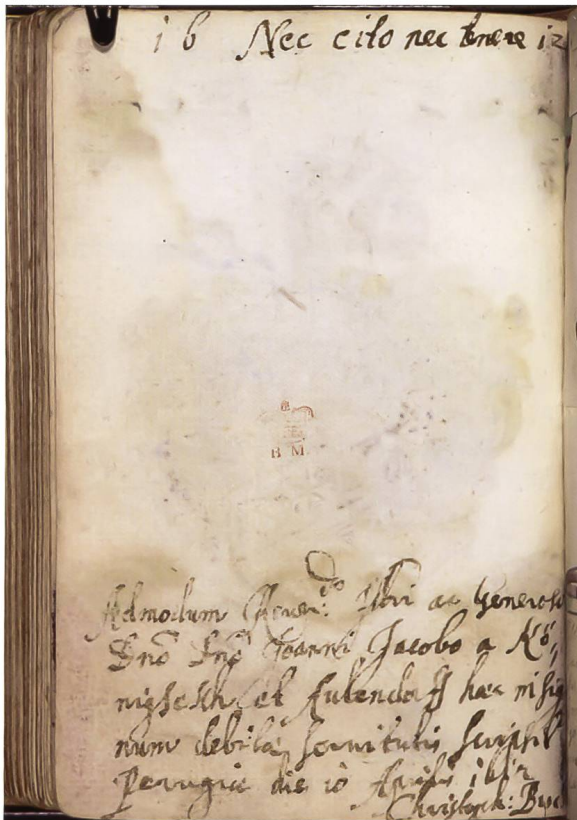 16 Nec cito nec temere 12
B M
Admodum Reuer:do Illri ac Generoso
Dno Dno Joanni Jacobo a Kö,,
nigseckh et Aulendorff hæc in sig
num debitæ seruitutis scripsit
Perugiæ die 10 Aprilis 1612
Christoph: